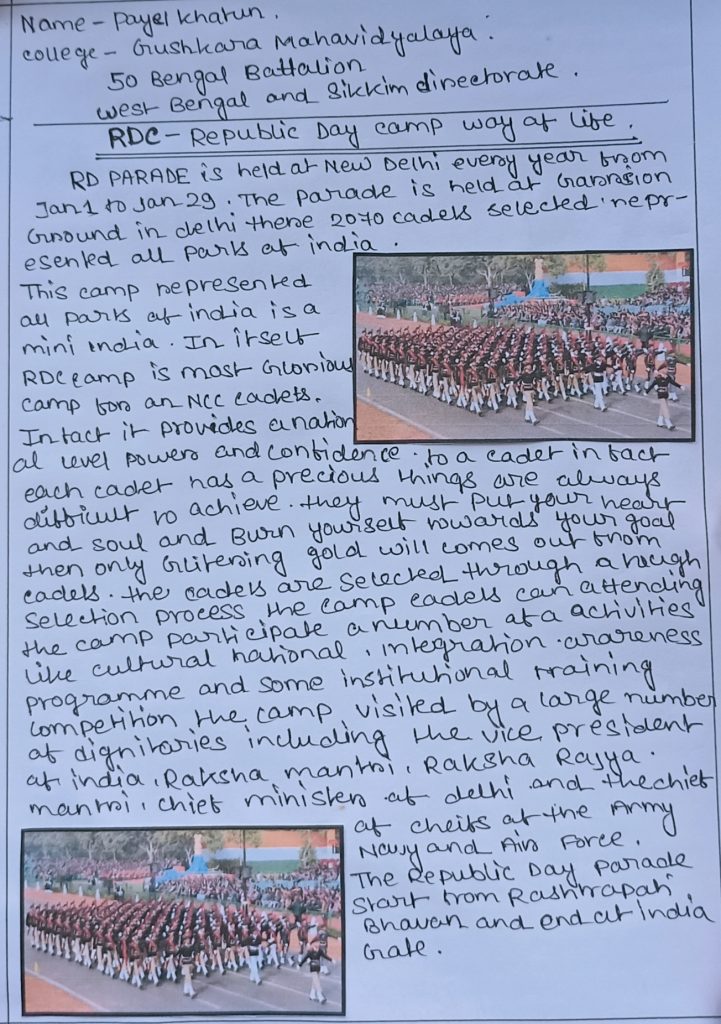 Name - Payel Khatun.
College - Gushkara Mahavidyalaya.
50 Bengal Battalion
West Bengal and Sikkim directorate.
RDC - Republic Day camp way of life.
RD PARADE is held at New Delhi every year from
Jan 1 to Jan 29. The Parade is held at Garrision
Ground in delhi there 2070 cadets selected repr-
esented all parts of india.
This camp represented
all parts of india is a
mini india. In itself
RDC camp is most Glorious
camp for an NCC cadets.
Infact it provides a nation
al level powers and confidence. to a cadet in fact
each cadet has a precious things are always
difficult to achieve. they must put your heart
and soul and Burn yourself towards your goal
then only Glitening gold will comes out from
cadets. the cadets are selected through a rough
selection process the camp cadets can attending
the camp participate a number of a activities
like cultural national, integration awareness
programme and some institutional training
competition the camp visited by a large number
of dignitories including the vice president
of india, Raksha mantri, Raksha Rajya.
mantri, chief ministers of delhi and the chief
of cheifs of the Army
Navy and Air Force.
The Republic Day Parade
start from Rashtrapati
Bhavan and end at india
Gate.